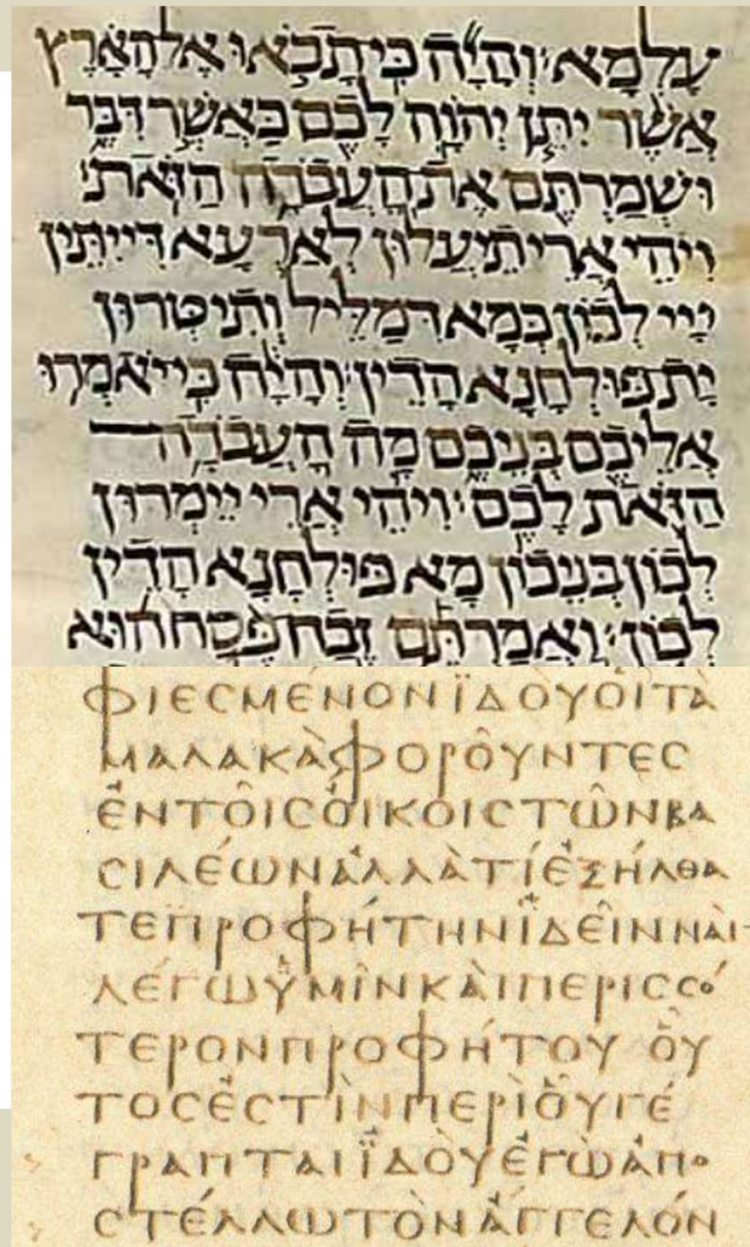 עָלְמָא׃ וְהָיָה כִּי־תָבֹאוּ אֶל־הָאָרֶץ
אֲשֶׁר יִתֵּן יְהוָה לָכֶם כַּאֲשֶׁר דִּבֵּר
וּשְׁמַרְתֶּם אֶת־הָעֲבֹדָה הַזֹּאת׃
וִיהֵי אֲרֵי תֵיעֲלוּן לְאַרְעָא דְּיִיתֵּין
יְיָי לְכוֹן כְּמָא דְּמַלֵּיל וְתִיטְּרוּן
יָת פּוּלְחָנָא הָדֵין׃ וְהָיָה כִּי־יֹאמְרוּ
אֲלֵיכֶם בְּנֵיכֶם מָה הָעֲבֹדָה
הַזֹּאת לָכֶם׃ וִיהֵי אֲרֵי יֵימְרוּן
לְכוֹן בְּנֵיכוֹן מָא פּוּלְחָנָא הָדֵין
לְכוֹן׃ וַאֲמַרְתֶּם זֶבַח־פֶּסַח הוּא
ΦΙΕϹΜΈΝΟΝΪΔΟῪΟἹΤᾺ
ΜΑΛΑΚᾺΦΟΡΟΥ͂ΝΤΕϹ
ἘΝΤΟΙ͂ϹΟἼΚΟΙϹΤΩ͂ΝΒΑ
ϹΙΛΈΩΝἈΛΛᾺΤΊἘΞΉΛΘΑ
ΤΕΠΡΟΦΉΤΗΝἸΔΕΙ͂ΝΝΑῚ
ΛΈΓΩὙΜΙ͂ΝΚΑῚΠΕΡΙϹϹΌ
ΤΕΡΟΝΠΡΟΦΉΤΟΥ ΟὟ
ΤΟϹἘϹΤῚΝΠΕΡῚΟὟΓΈ
ΓΡΑΠΤΑΙἸΔΟῪἘΓῺἈΠΟ
ϹΤΈΛΛΩΤῸΝἌΓΓΕΛΌΝ